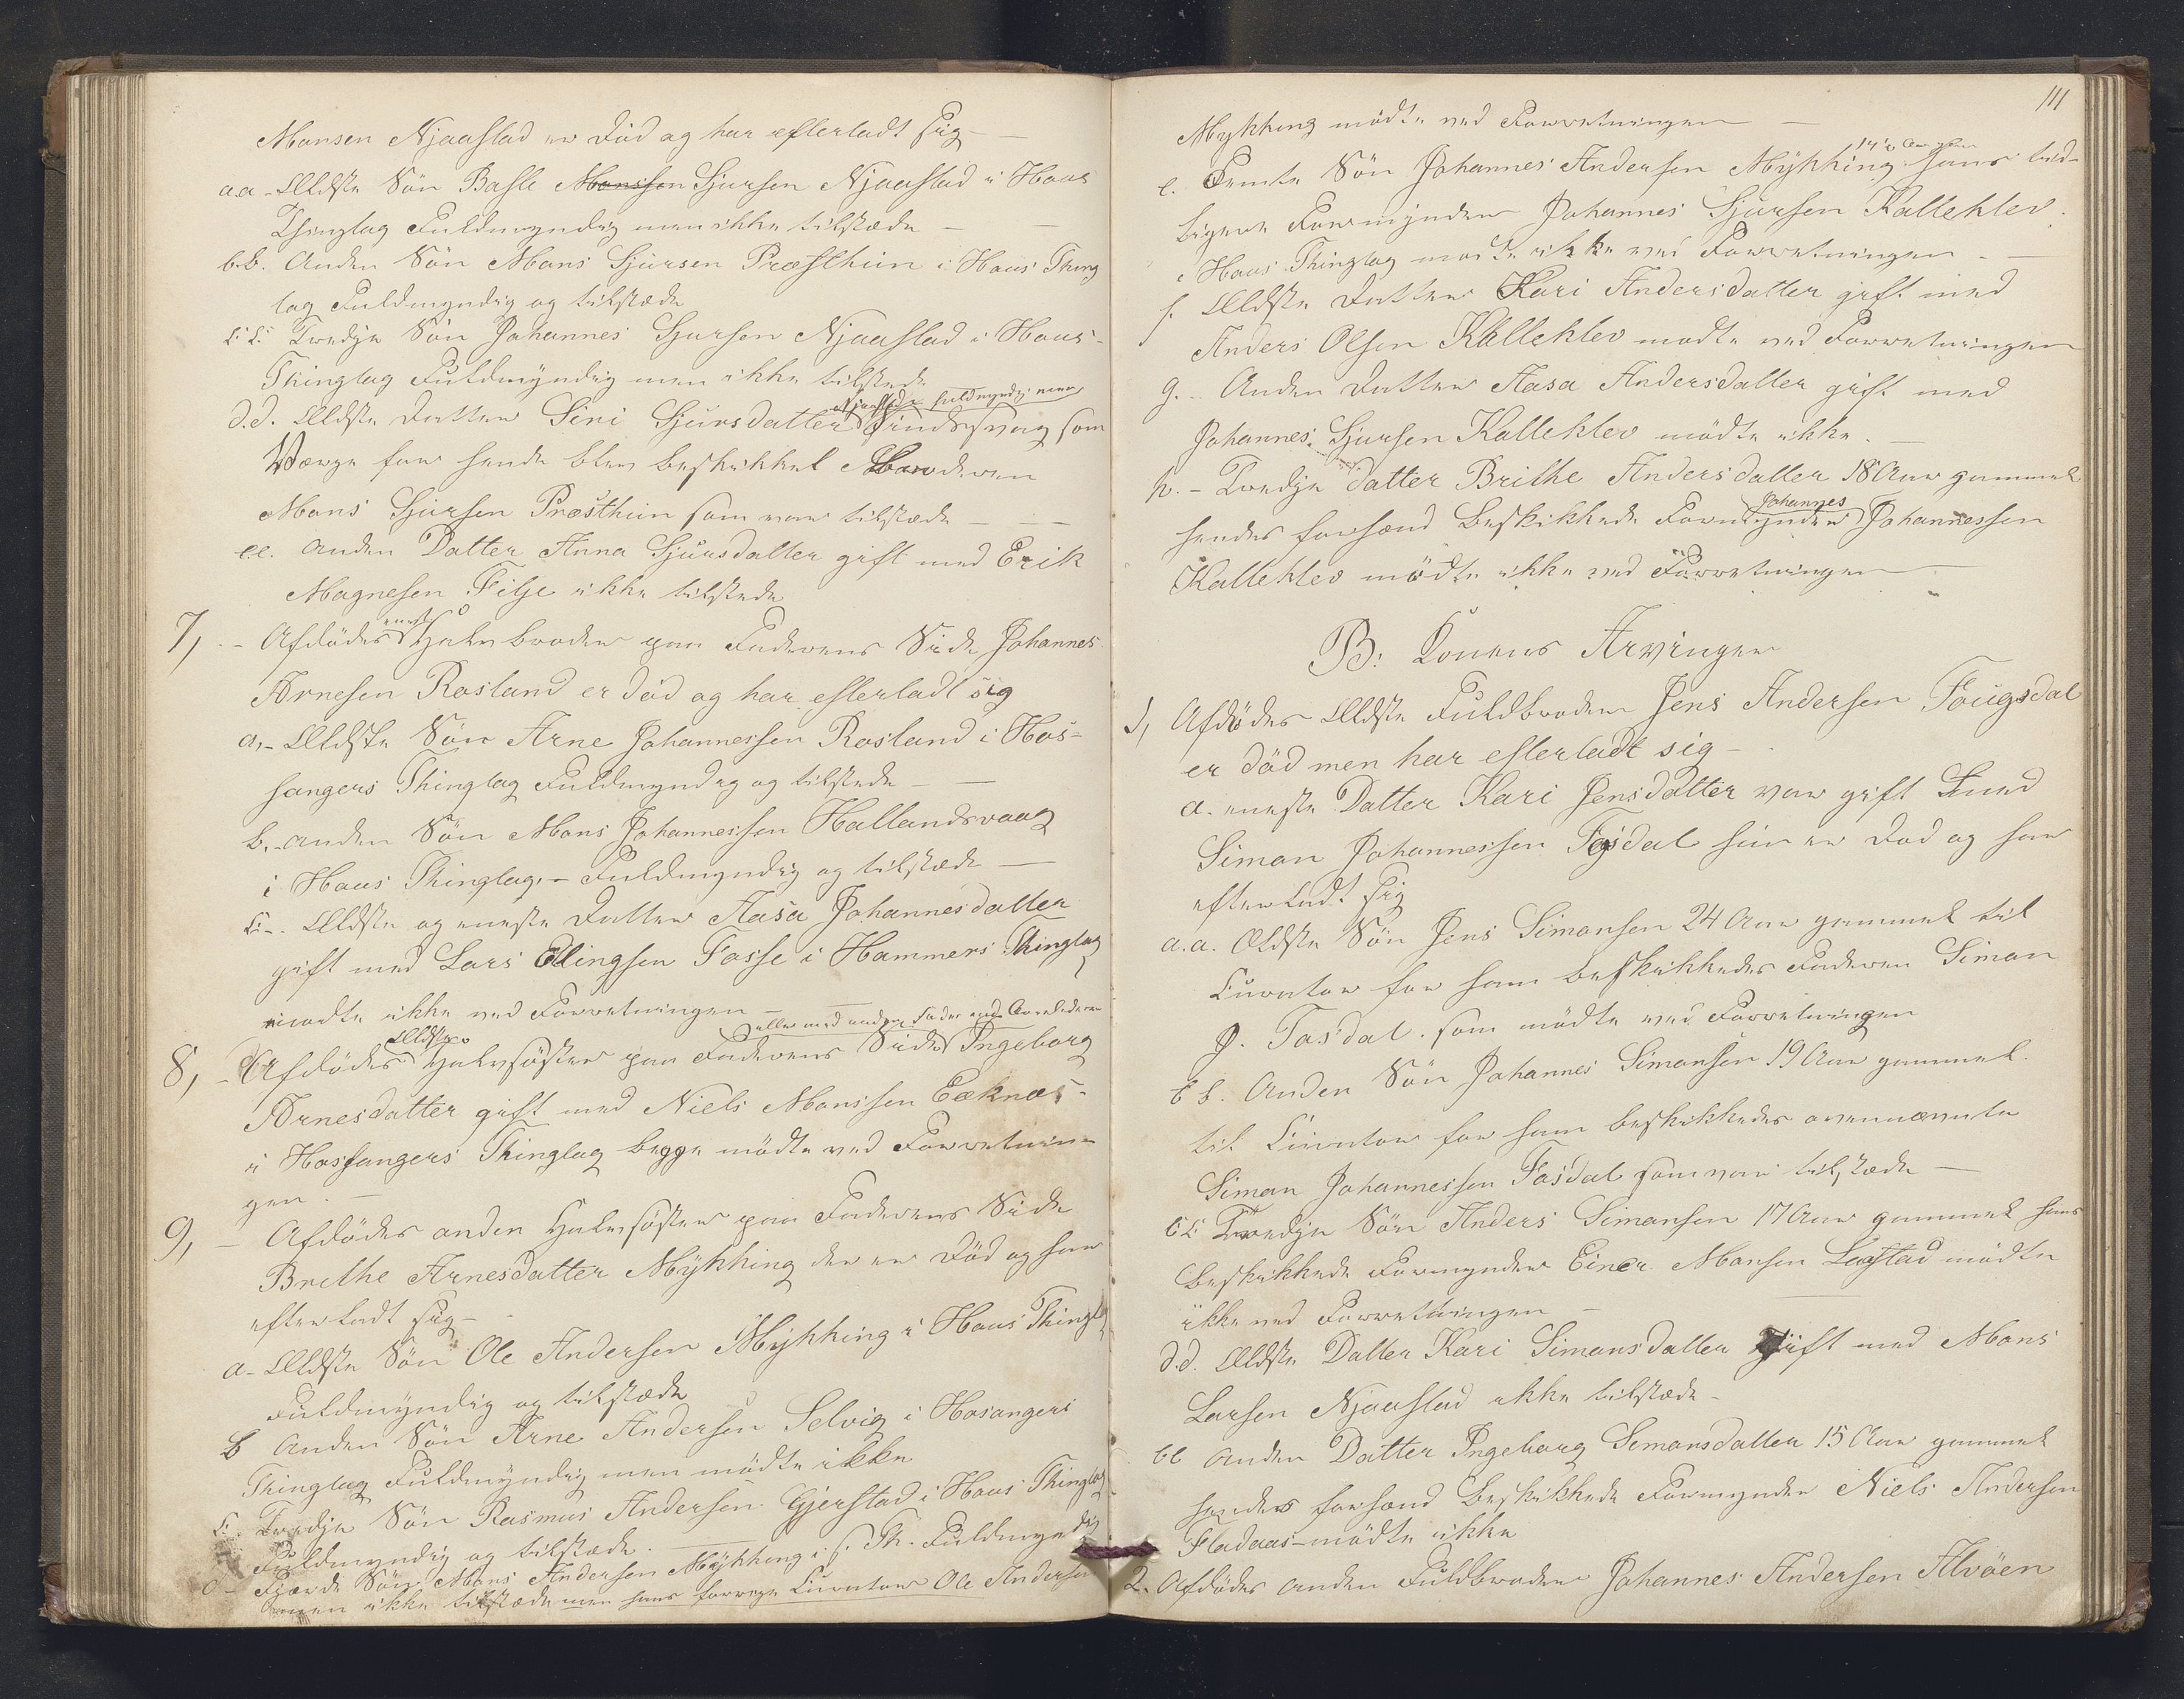 Monsen Njaastad er død og har efterladt sig —
a.a. Ældste Søn Basse Monssen Sjursen Njaastad i Haus
Thinglag Fuldmyndig men ikke tilstæde —
b.b. Anden Søn Mons Sjursen Præsthun i Haus Thing
lag Fuldmyndig og tilstæde
c.c. Tredje Søn Johannes Sjursen Njaastad i Haus
Thinglag Fuldmyndig men ikke tilstede
Njaastad fuldmyndig men
d.d. Ældste Datter Sini Sjursdatter Sindssvag som
Værge for hende blev beskikket Broderen
Mons Sjursen Præsthun som var tilstæde — —
e.e. Anden Datter Anna Sjursdatter gift med Erik
Magnesen Filse ikke tilstede
7, - Afdødes eneste Halvbroder paa Faderens Side Johannes
Arnesen Rosland er død og har efterladt sig
a,- Ældste Søn Arne Johannessen Rosland i Hos-
sangers Thinglag Fuldmyndig og tilstede —
b,- anden Søn Mons Johannessen Hallandsvaag
i Haus Thinglag,- Fuldmyndig og tilstæde —
c.- Ældste og eneste Datter Aasa Johannesdatter
gift med Lars Edlingsen Fosse i Hammers Thinglag
mødte ikke ved Forretningen —
eller med anden Fader end Arveladeren
8, - Afdødes Ældste Halvsøster paa Faderens Side Ingeborg
Arnesdatter gift med Niels Monssen Eeknæs-
i Hossangers Thinglag begge mødte ved Forretnin-
gen. —
9, - Afdødes anden Halvsøster paa Faderens Side
Brethe Arnesdatter Mykking der er Død og har
efterladt sig —
a- Ældste Søn Ole Andersen Mykking i Haus Thinglag
Fuldmyndig og tilstæde
b Anden Søn Arne Andersen Selvig i Hosangers
Thinglag Fuldmyndig men mødte ikke
c. Tredje Søn Rasmus Andersen Gjerstad i Haus Thinglag
Fuldmyndig og tilstæde. —
d- Fjærde Søn Mons Andersen Mykking i s. Th. Fuldmyndig
men ikke tilstæde men hans forrige Curator Ole Andersen
111
Mykking mødte ved Forretningen —
e. Femte Søn Johannes Andersen Mykking 14½ Aar gam. hans tid-
ligere Formynder Johannes Sjursen Kalleklev
i Haus Thinglag mødte ikke ved Forretningen. —
f. Ældste Datter Kari Andersdatter gift med
Anders Olsen Kalleklev mødte ved Forretningen
g. - Anden Datter Aasa Andersdatter gift med
Johannes Sjursen Kalleklev mødte ikke. —
h. - Tredje Datter Brithe Andersdatter 18 Aar gammel
hendes forhend Beskikkede Formynder Johannes Johannessen
Kalleklev mødte ikke ved Forretningen —
B: Konens Arvinger
1, Afdødes Ældste Fuldbroder Jens Andersen Fougsdal
er død men har efterladt sig —
a. eneste Datter Kari Jensdatter var gift med
Siman Johannessen Fosdal hun er Død og har
efterladt sig
a.a. Ældste Søn Jens Simonsen 24 Aar gammel til
Curator for ham beskikkedes Faderen Siman
J. Fosdal. som mødte ved Forretningen
b b. Anden Søn Johannes Simonsen 19 Aar gammel
til Curator for ham beskikkedes ovennævnte
Siman Johannessen Fosdal som var tilstæde —
c c Tredje Søn Anders Simansen 17 Aar gammel hans
beskikkede Formynder Einer Monsen Lastad mødte
ikke ved Forretningen —
d.d. Ældste Datter Kari Simansdatter gift med Mons
Larsen Njaastad ikke tilstæde —
e e Anden Datter Ingeborg Simansdatter 15 Aar gammel
hendes forhend Beskikkede Formynder Niels Andersen
Fladaas- mødte ikke
2. Afdødes anden Fuldbroder Johannes Andersen Alvøen